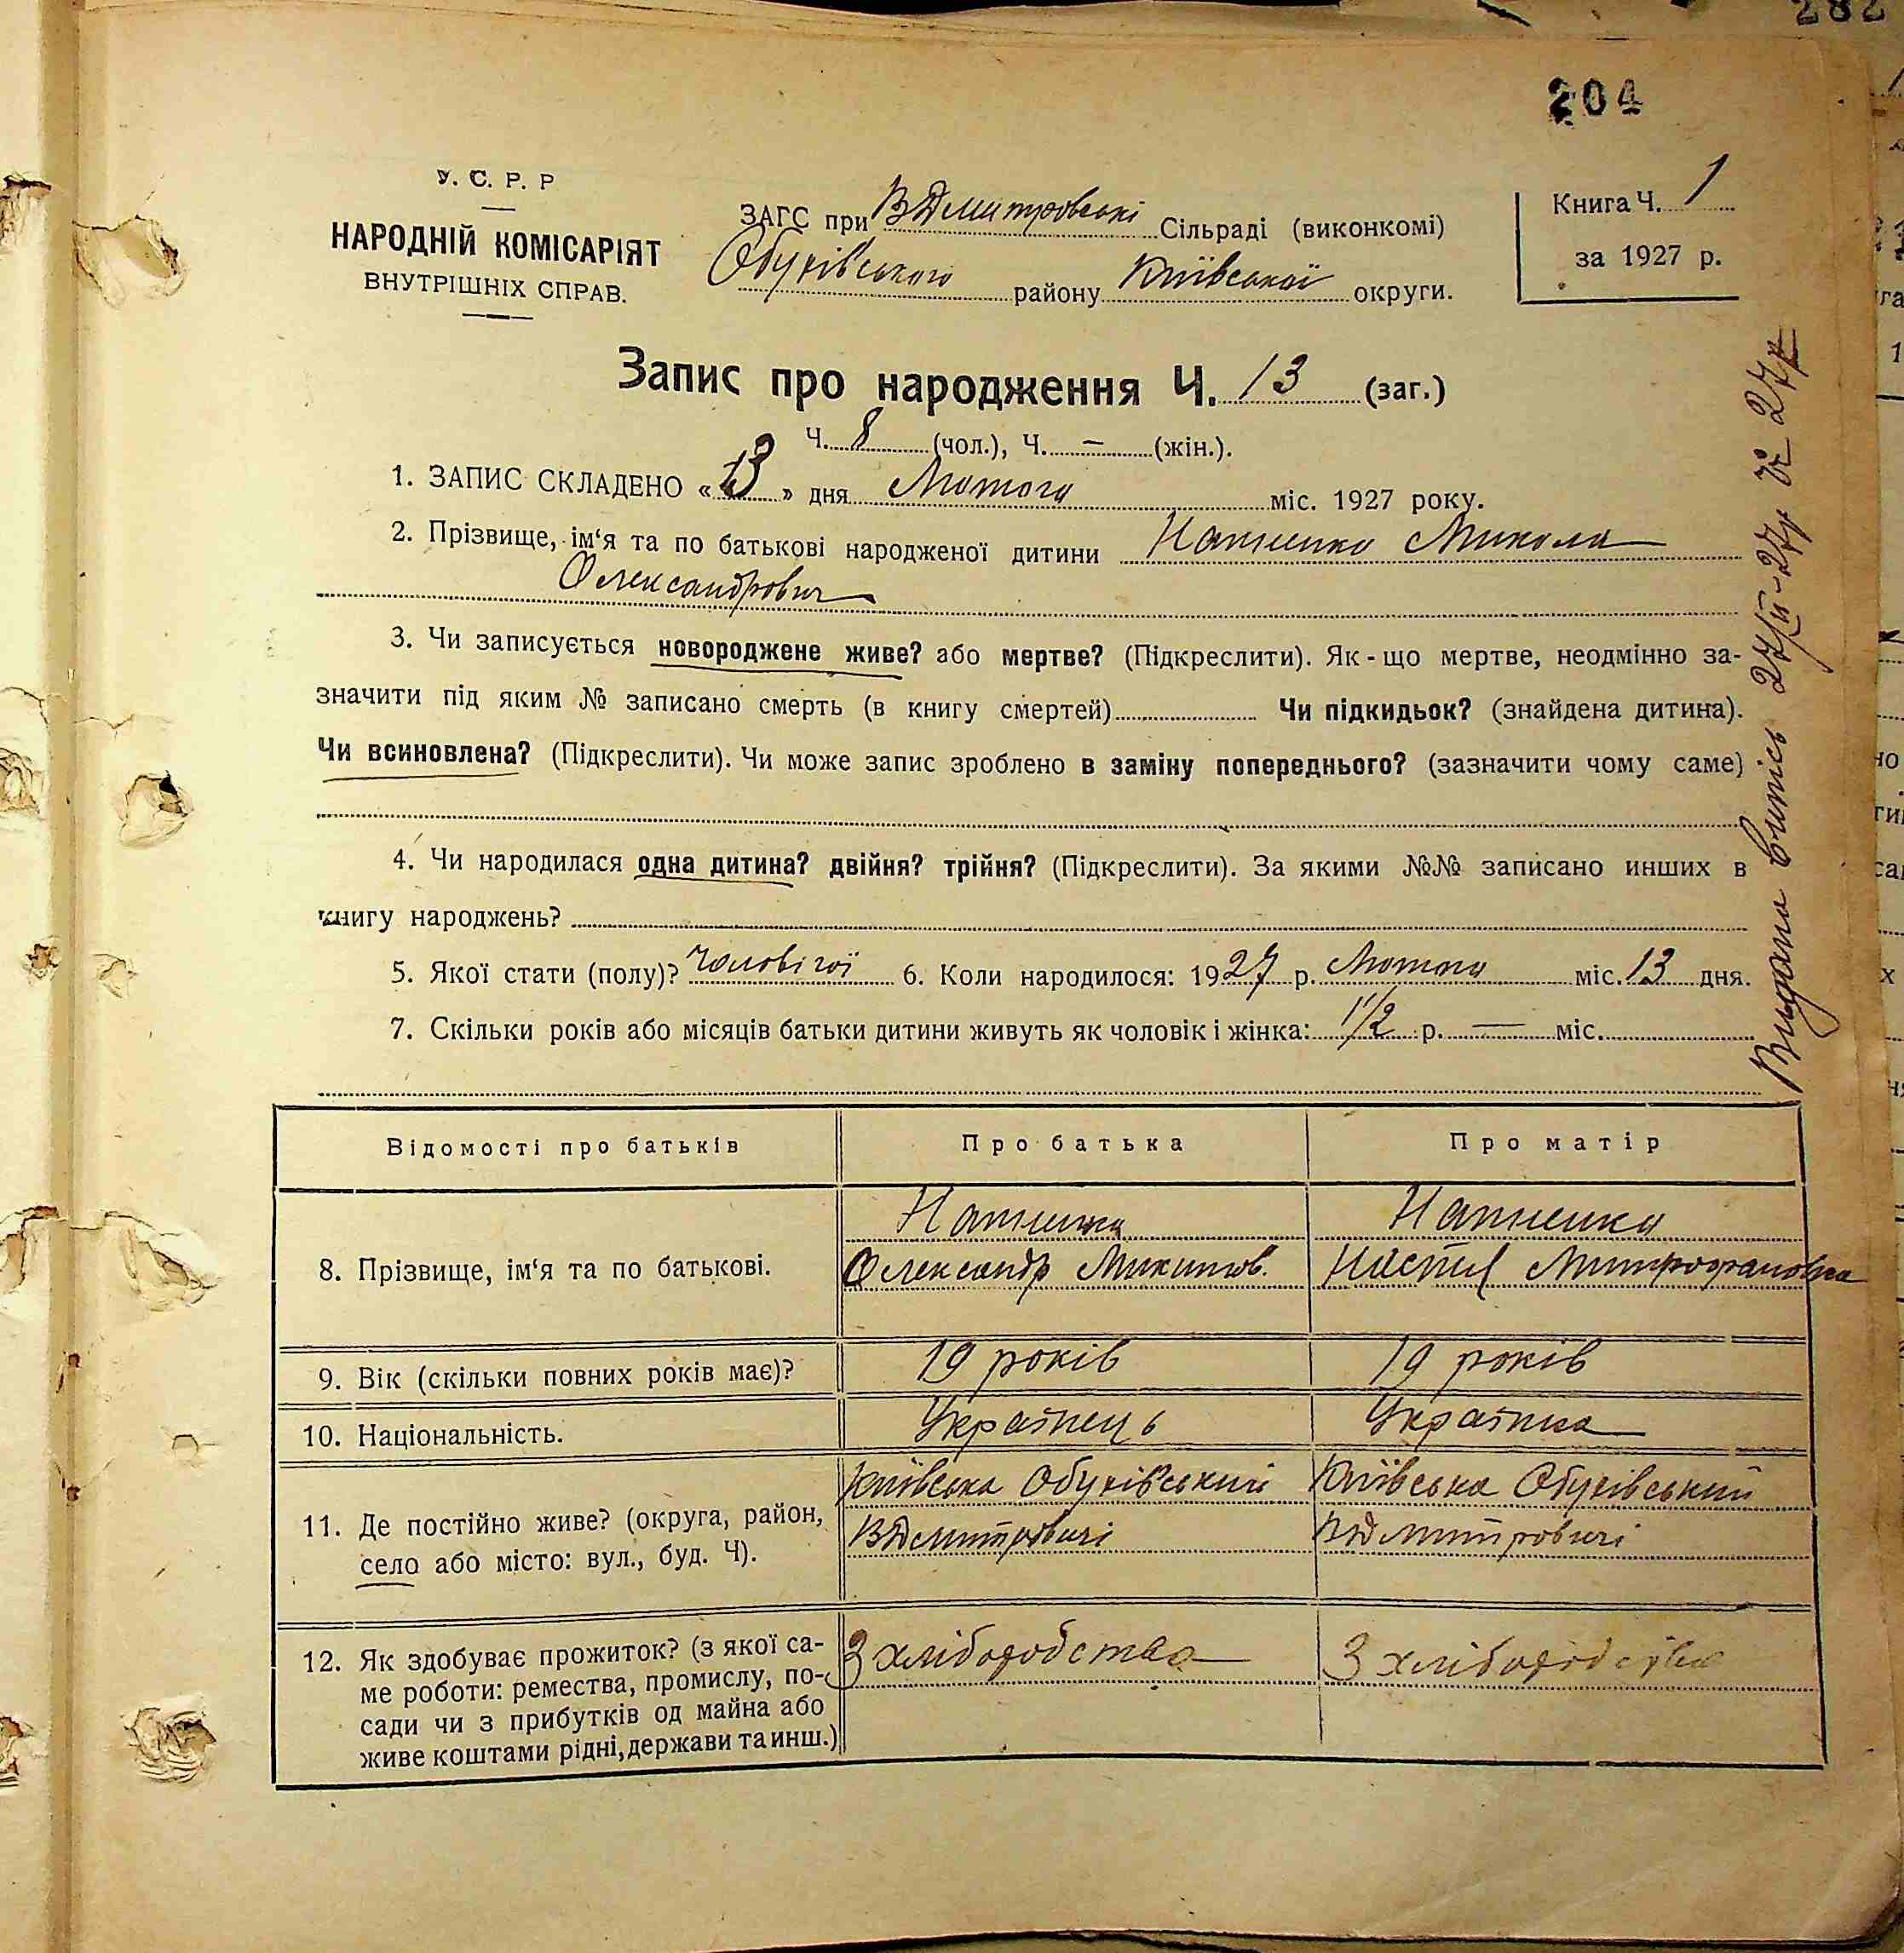 204
У. С. Р. Р
НАРОДНІЙ КОМІСАРІЯТ
ВНУТРІШНІХ СПРАВ.
ЗАГС при ВДмитровські Сільраді (виконкомі)
Обухівського району Київської округи.
Книга Ч. 1
за 1927 р.
Запис про народження Ч. 13 (заг.)
Ч. 8 (чол.), Ч. — (жін.).
1. ЗАПИС СКЛАДЕНО « 13 » дня Лютого міс. 1927 року.
2. Прізвище, ім‘я та по батькові народженої дитини Микола
Олександрович
3. Чи записується новороджене живе? або мертве? (Підкреслити). Як-що мертве, неодмінно за-
значити під яким № записано смерть (в книгу смертей) Чи підкидьок? (знайдена дитина).
Чи всиновлена? (Підкреслити). Чи може запис зроблено в заміну попереднього? (зазначити чому саме)
4. Чи народилася одна дитина? двійня? трійня? (Підкреслити). За якими №№ записано инших в
книгу народжень?
5. Якої стати (полу)? Чоловічої 6. Коли народилося: 1927 р. Лютого міс. 13 дня.
7. Скільки років або місяців батьки дитини живуть як чоловік і жінка: 1 1/2 р. — міс.
Видана витпісь
Відомості про батьків Про батька Про матір
8. Прізвище, ім‘я та по батькові.
Олександр Микитов. Настя Митрофановна
9. Вік (скільки повних років має)? 19 років 19 років
10. Національність. Українець Українка
11. Де постійно живе? (округа, район,
село або місто: вул., буд. Ч).
Київська Обухівський Київська Обухівський
ВДмитровичі ВДмитровичі
12. Як здобуває прожиток? (з якої са-
ме роботи: ремества, промислу, по-
сади чи з прибутків од майна або
живе коштами рідні, держави та инш.)
З хліборобства З хліборобства